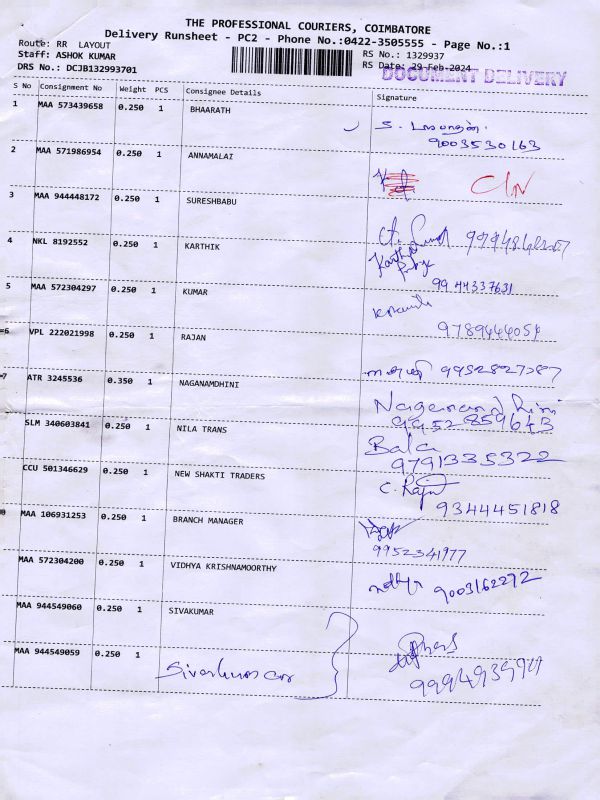 THE PROFESSIONAL COURIERS, COIMBATORE
Delivery Runsheet - PC2 - Phone No.:0422-3505555 - Page No.:1
Route: RR LAYOUT
RS No.: 1329937
Staff: ASHOK KUMAR
RS Date: 29-Feb-2024
DOCUMENT DELIVERY
DRS No.: DCJB132993701
S No Consignment No Weight PCS Consignee Details Signature
1 MAA 573439658 0.250 1 BHAARATH
9003530163
2 MAA 571986954 0.250 1 ANNAMALAI
3 MAA 944448172 0.250 1 SURESHBABU
4 NKL 8192552 0.250 1 KARTHIK
Karthik
99 44337631
5 MAA 572304297 0.250 1 KUMAR
9789444054
6 VPL 222021998 0.250 1 RAJAN
7 ATR 3245536 0.350 1 NAGANAMDHINI
9952859643
SLM 340603841 0.250 1 NILA TRANS
Bala
9791335322
CCU 501346629 0.250 1 NEW SHAKTI TRADERS
C. Raju
9344451818
0 MAA 106931253 0.250 1 BRANCH MANAGER
9952341977
MAA 572304200 0.250 1 VIDHYA KRISHNAMOORTHY
9003162272
MAA 944549060 0.250 1 SIVAKUMAR
MAA 944549059 0.250 1 Sivakumar